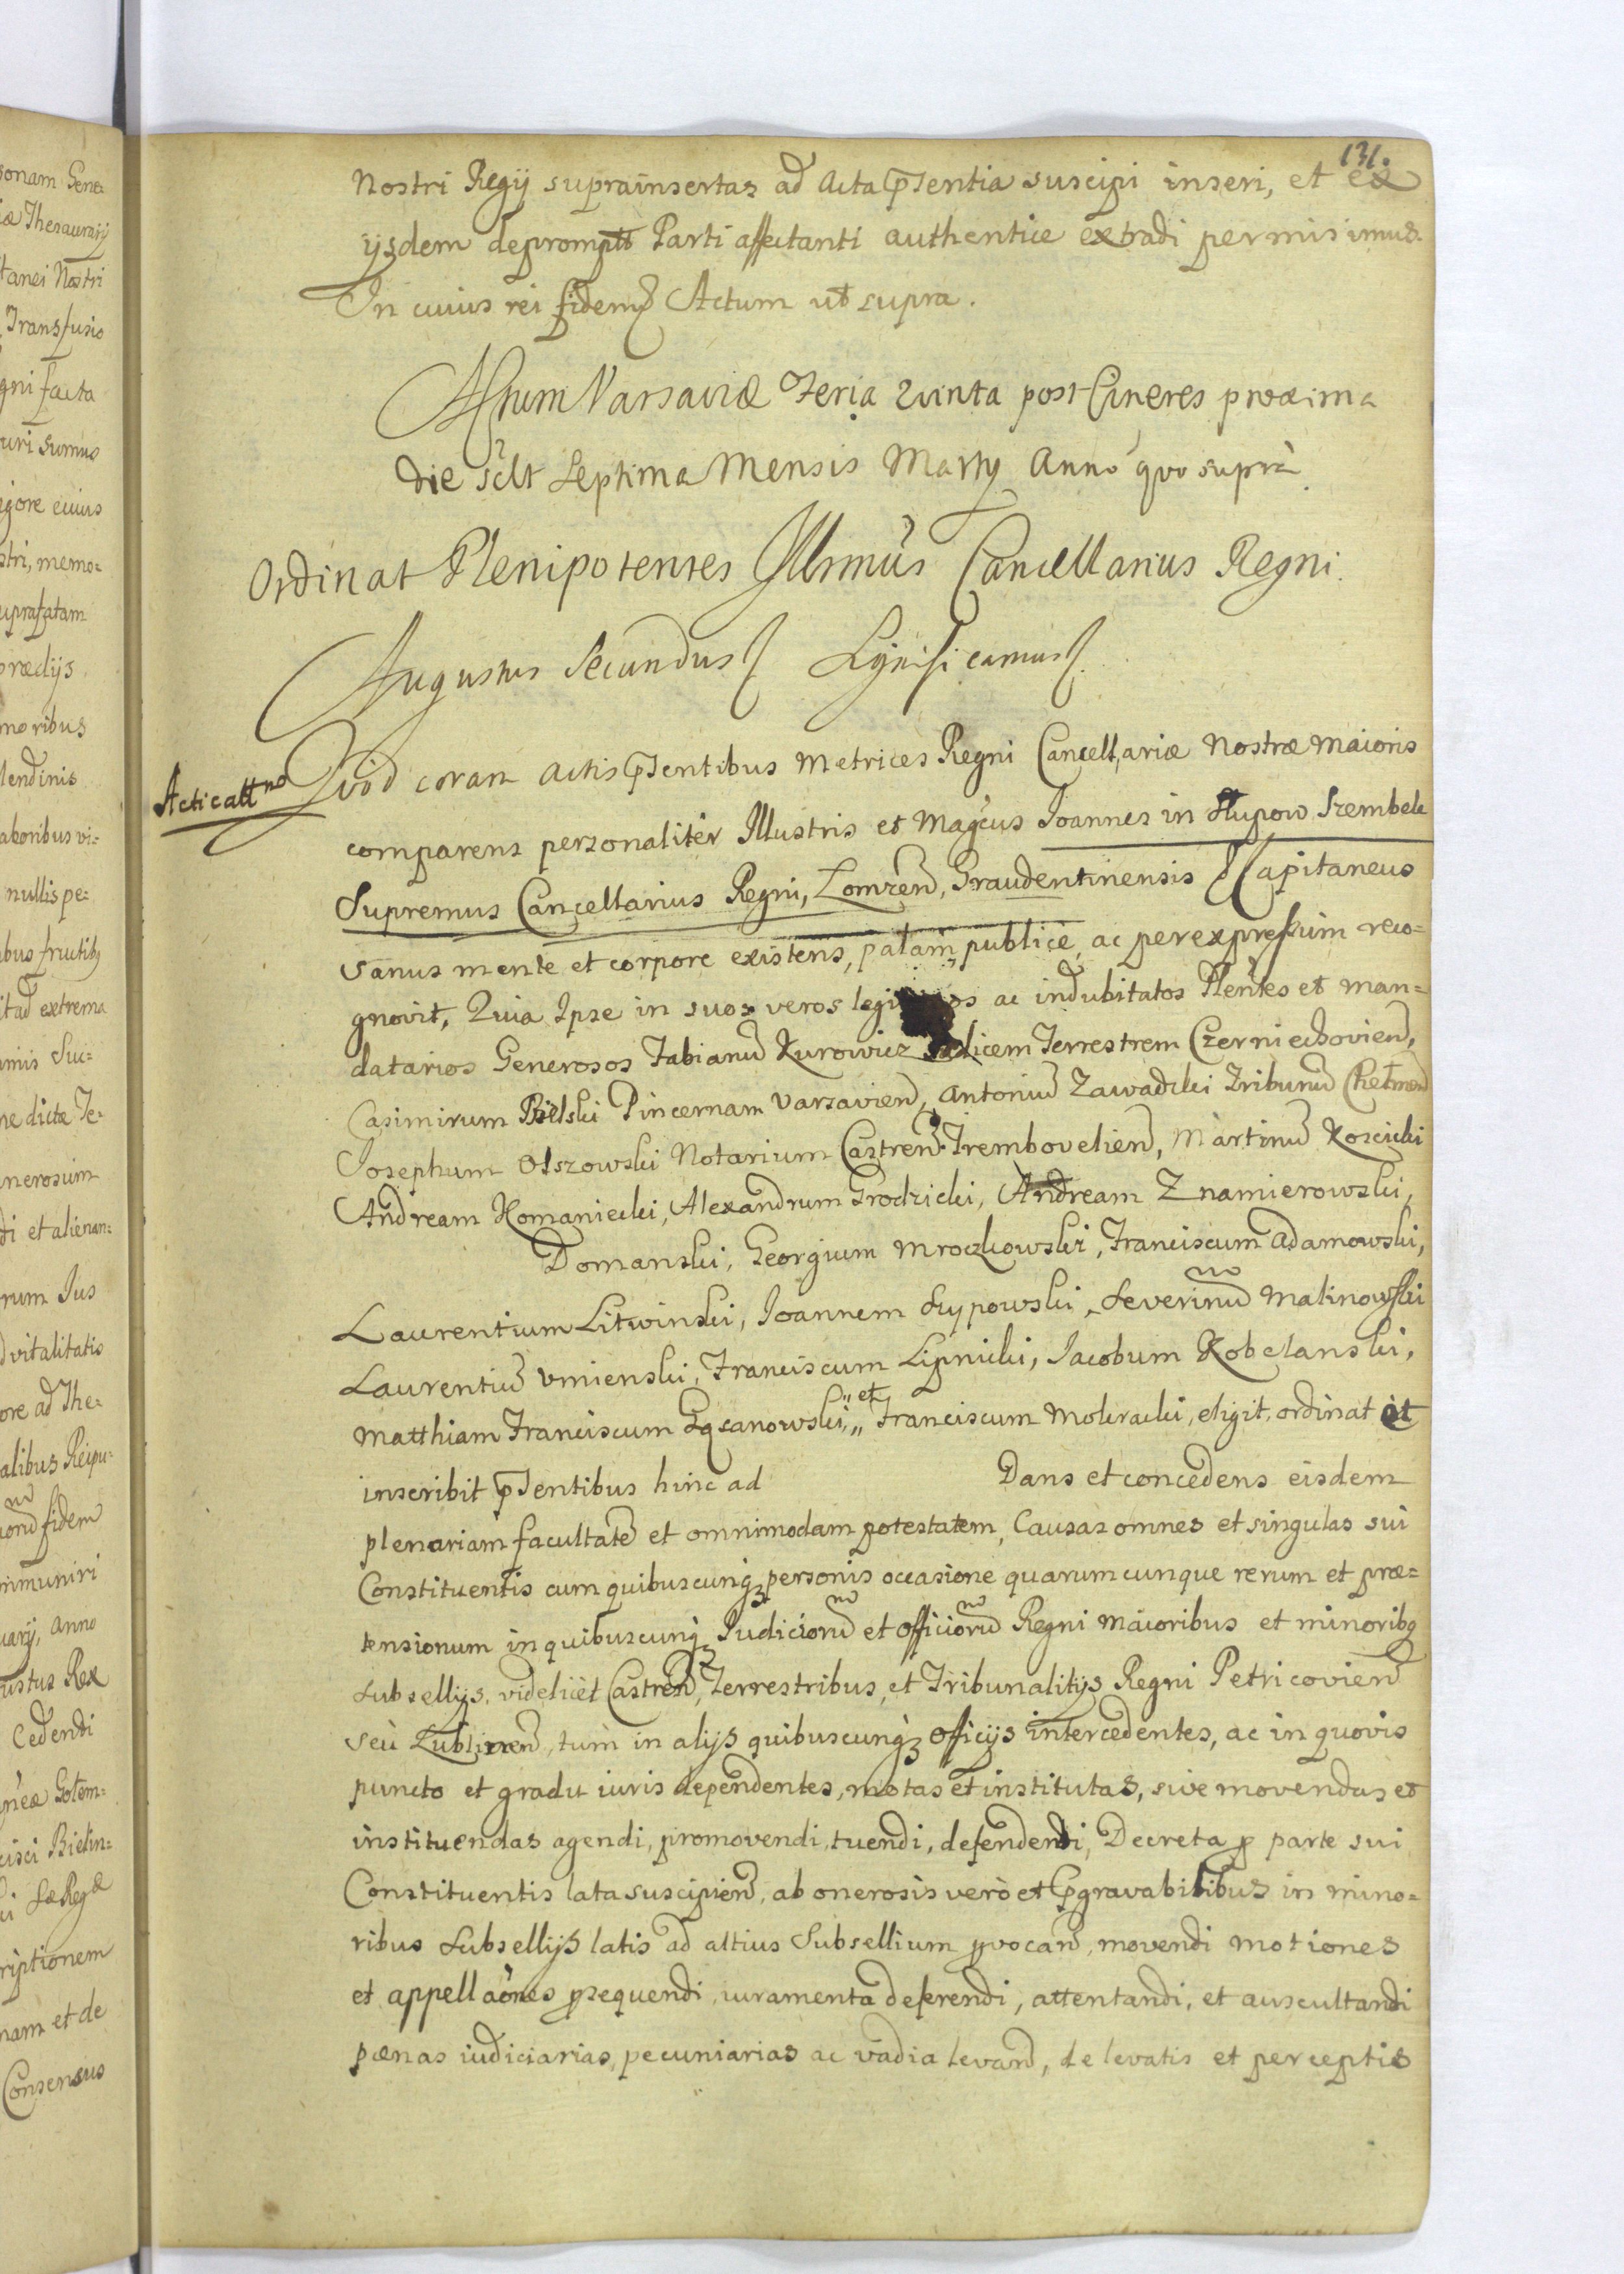 131.
Nostri Regij suprainsertas ad Acta pntia suscipi inseri, et ex
ijsdem depromptũ Parti affectanti authentice extradi permisimus.
In cuius rei fidem Actum ut supra.
Actum Varsaviæ Feria Quinta post Cineres proxima
die sclt Septima Mensis Martij Anno quo supra
Ordinat Plenipotentes Illrmus Cancellarius Regni.
Augustus Secundus Significamus
Acticattno
Quod coram Actis pntibus Metrices Regni Cancellariæ Nostræ Maioris
comparens personaliter Illustris et Magcus Joannes in Słupow Szembek
Supremus Cancellarius Regni, Lomzen, Graudentinensis Capitaneus
sanus mente et corpore existens, palam publice, ac per expressum reco-
gnovit, Quia Ipse in suos veros legi os ac indubitatos Plentes et man-
datarios Generosos Fabianu Kurowicz Terrestrem Czerniechovien,
Casimirum Bielski Pincernam Varsavien, Antoniu Zawadzki Tribunu Chelmen
Josephum Olszowski Notarium Castren Trembovelien, Martinu Koscicki
Andream Homaniecki, Alexandrum Grodzicki, Andream Znamierowski,
Domanski, Georgium Mroczkowski, Franciscum Adamowski,
Laurentium Litwinski, Joannem Lypowski, Severinu Malinowski
Laurentiu Umienski, Franciscum Lipnicki, Jacobum Kobelanski,
Matthiam Franciscum Lqcanowski, et Franciscum Mokracki, eligit, ordinat et
inscribit pntibus hinc ad Dans et concedens eisdem
plenariam facultate et omnimodam potestatem, Causas omnes et singulas sui
Constituentis cum quibuscunq personis occasione quarumcunque rerum et præ-
tensionum in quibuscunq Judicioru et Officioru Regni Maioribus et minoribq
Subsellijs, videlicet Castren, Terrestribus, et Tribunalitijs Regni Petricovien
seu Lublinen, tum in alijs quibuscunq Officijs intercedentes, ac in quovis
puncto et gradu iuris dependentes, motas et institutas, sive movendas et
instituendas agendi, promovendi, tuendi, defendendi, Decreta p parte sui
Constituentis lata suscipien, ab onerosis vero et pgravabilibus in mino-
ribus Subsellijs latis ad altius Subsellium pvocan, movendi motiones
et appellaones psequendi, iuramenta deferendi, attentandi, et auscultandi
pænas iudiciarias, pecuniarias ac vadia levan, de levatis et perceptis